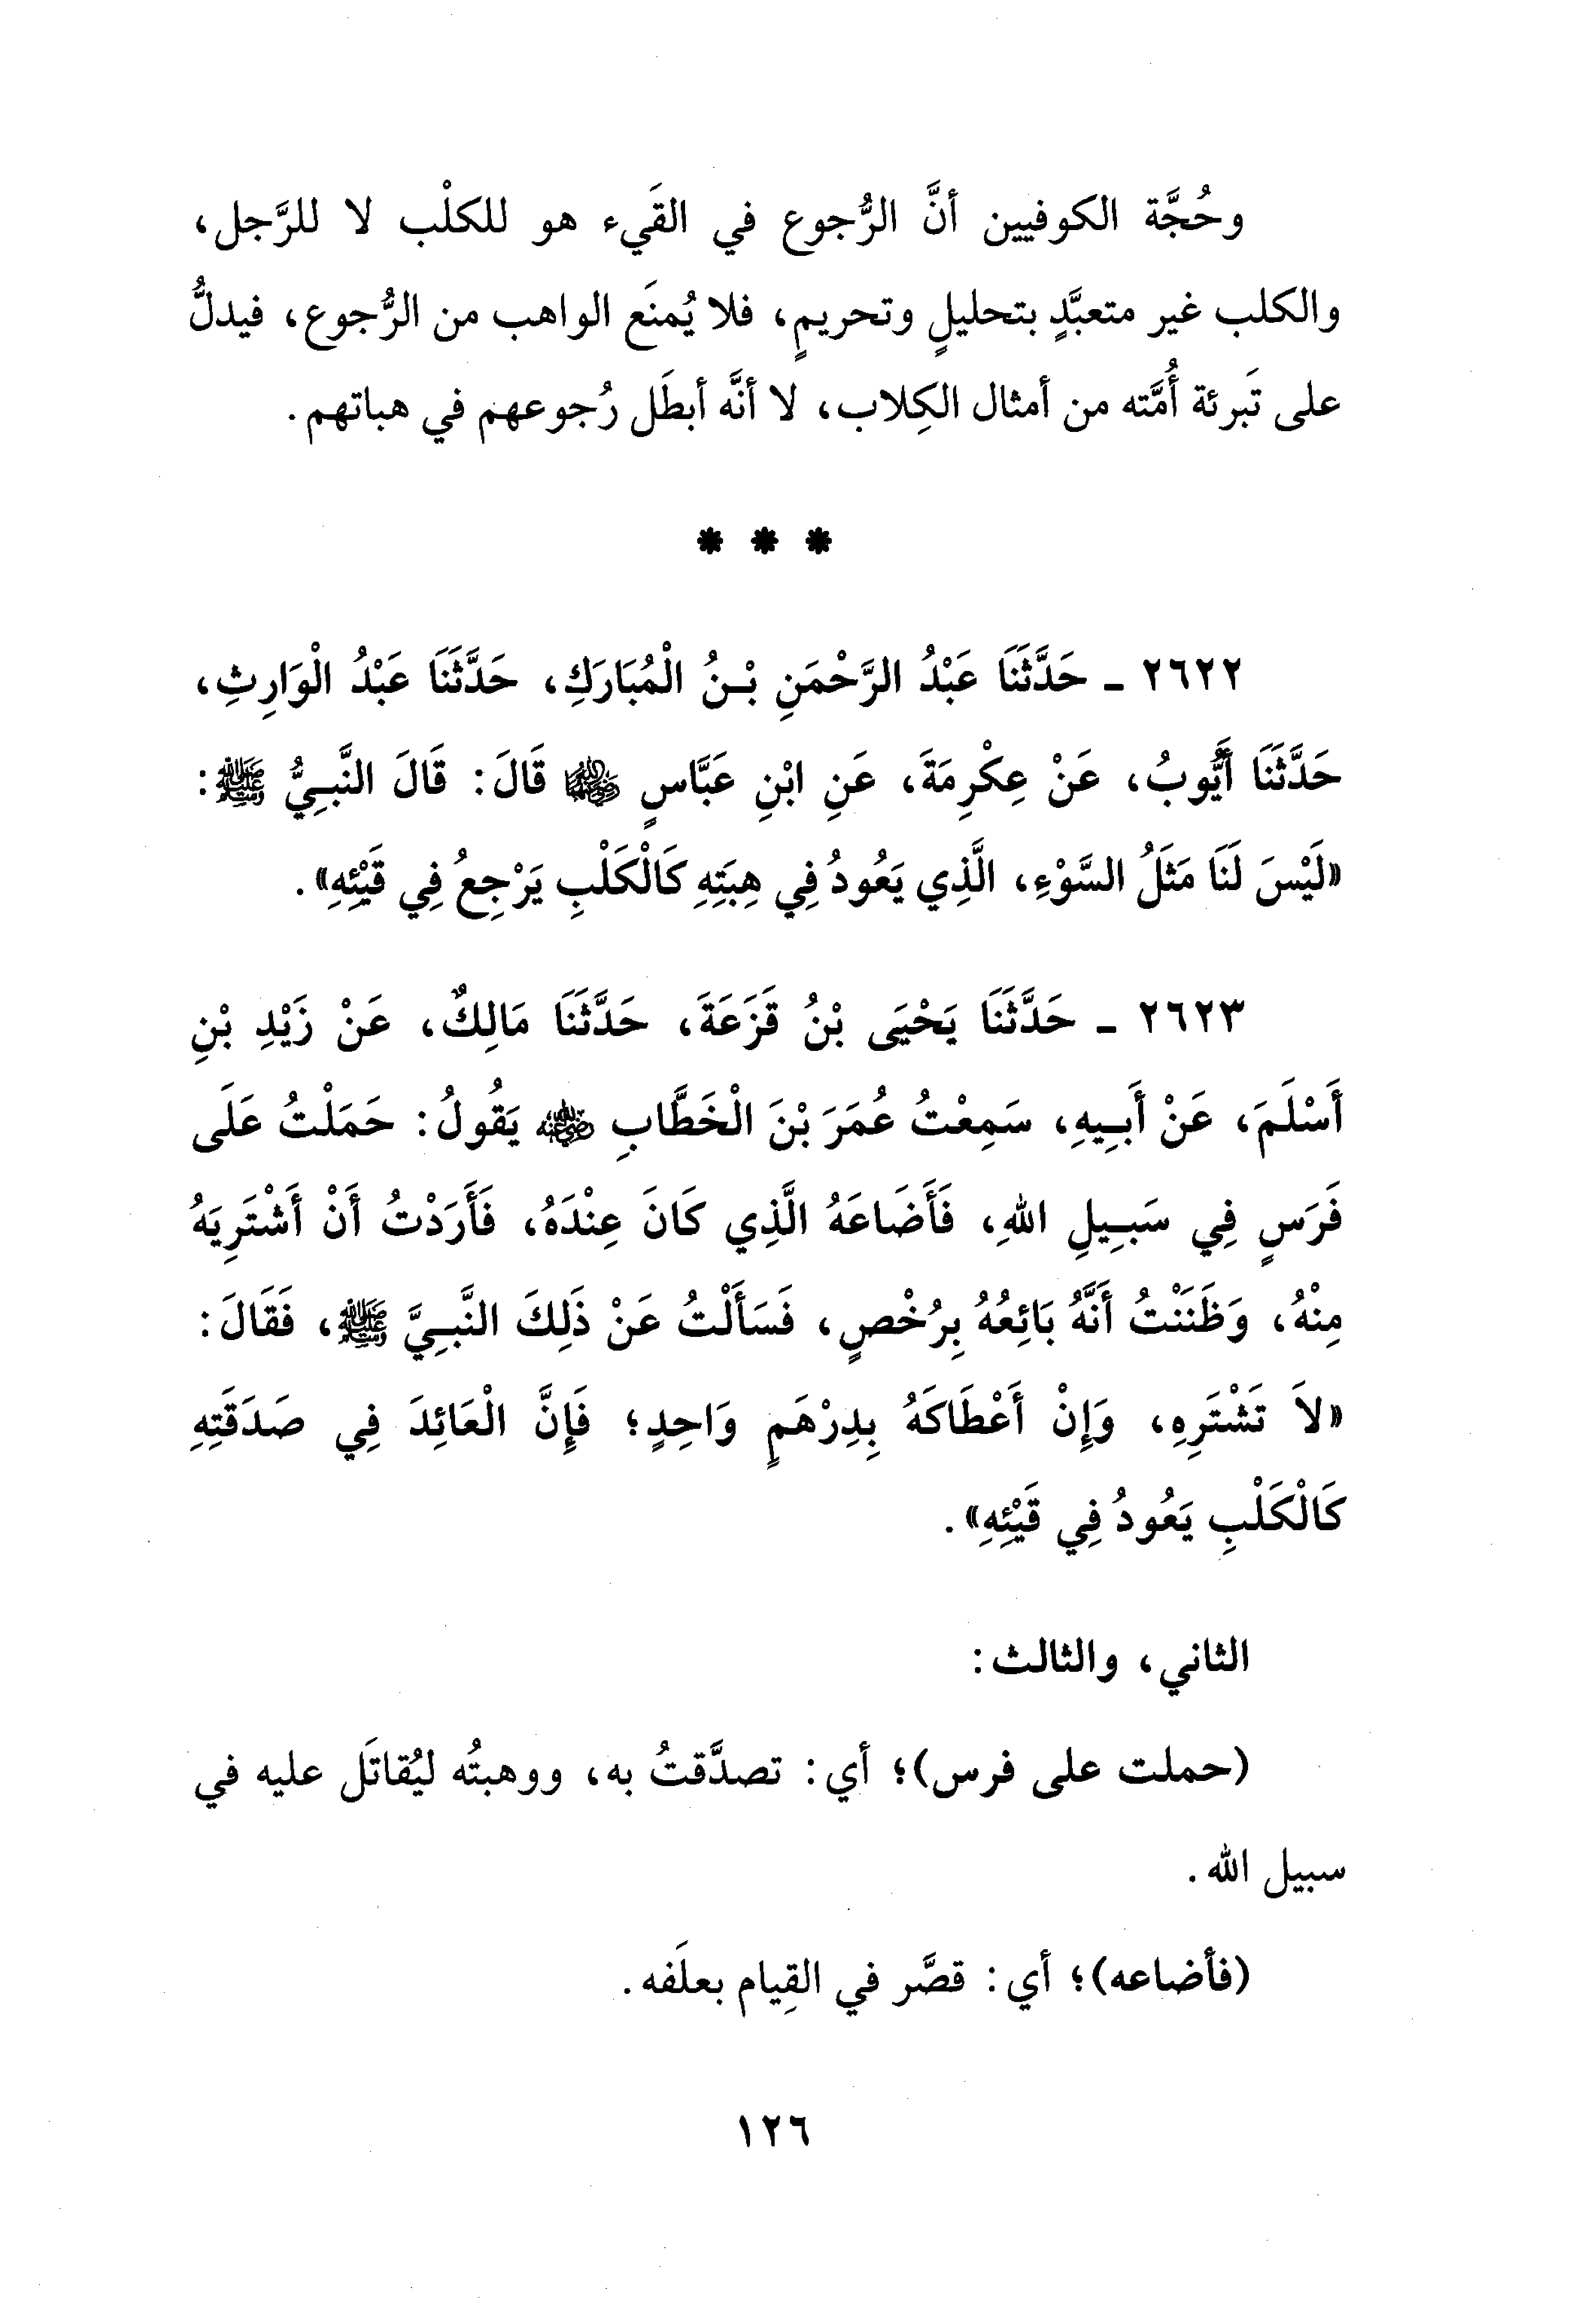 وحُجَّة الكوفيين أنَّ الرُّجوع في القَيء هو للكلْب لا للرَّجل،
والكلب غير متعبَّدٍ بتحليلٍ وتحريمٍ، فلا يُمنَع الواهب من الرُّجوع، فيدلُّ
على تَبرئة أُمَّته من أمثال الكِلاب، لا أنَّه أبطَل رُجوعهم في هباتهم.
* * *
٢٦٢٢ ـ حَدَّثَنَا عَبْدُ الرَّحْمَنِ بْنُ الْمُبَارَكِ، حَدَّثَنَا عَبْدُ الْوَارِثِ،
حَدَّثَنَا أَيُّوبُ، عَنْ عِكْرِمَةَ، عَنِ ابْنِ عَبَّاسٍ رضي الله عنهما قَالَ: قَالَ النَّبِيُّ ﷺ:
«لَيْسَ لَنَا مَثَلُ السَّوْءِ، الَّذِي يَعُودُ فِي هِبَتِهِ كَالْكَلْبِ يَرْجِعُ فِي قَيْئِهِ».
٢٦٢٣ ـ حَدَّثَنَا يَحْيَى بْنُ قَزَعَةَ، حَدَّثَنَا مَالِكٌ، عَنْ زَيْدِ بْنِ
أَسْلَمَ، عَنْ أَبِيهِ، سَمِعْتُ عُمَرَ بْنَ الْخَطَّابِ رضي الله عنه يَقُولُ: حَمَلْتُ عَلَى
فَرَسٍ فِي سَبِيلِ اللهِ، فَأَضَاعَهُ الَّذِي كَانَ عِنْدَهُ، فَأَرَدْتُ أَنْ أَشْتَرِيَهُ
مِنْهُ، وَظَنَنْتُ أَنَّهُ بَائِعُهُ بِرُخْصٍ، فَسَأَلْتُ عَنْ ذَلِكَ النَّبِيَّ ﷺ، فَقَالَ:
«لاَ تَشْتَرِهِ، وَإِنْ أَعْطَاكَهُ بِدِرْهَمٍ وَاحِدٍ؛ فَإِنَّ الْعَائِدَ فِي صَدَقَتِهِ
كَالْكَلْبِ يَعُودُ فِي قَيْئِهِ».
الثاني، والثالث:
(حملت على فرس)؛ أي: تصدَّقتُ به، ووهبتُه ليُقاتَل عليه في
سبيل الله.
(فأضاعه)؛ أي: قصَّر في القِيام بعلَفه.
١٢٦